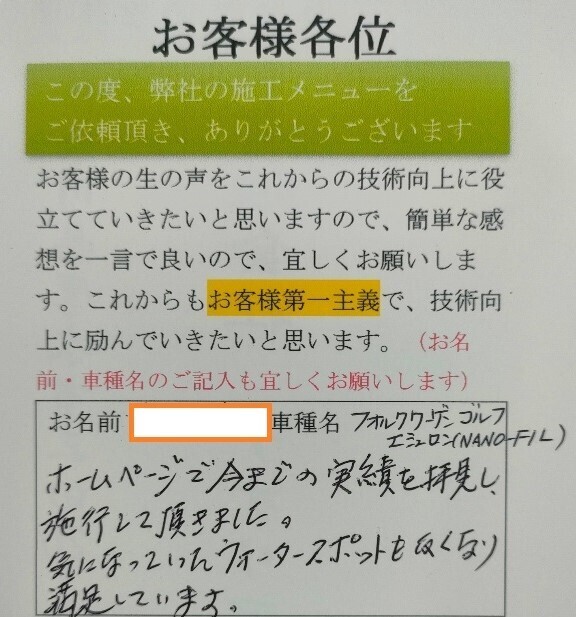 お客様各位
この度、弊社の施工メニューを
ご依頼頂き、ありがとうございます
お客様の生の声をこれからの技術向上に役
立てていきたいと思いますので、簡単な感
想を一言で良いので、宜しくお願いしま
す。これからもお客様第一主義で、技術向
上に励んでいきたいと思います。（お名
前・車種名のご記入も宜しくお願いします）
お名前 車種名 フォルクワーゲンゴルフ
エシュロン(NANO-FIL)
ホームページで今までの実績を拝見し、
施行して頂きました。
気になっていたウォータースポットも無くなり
満足しています。